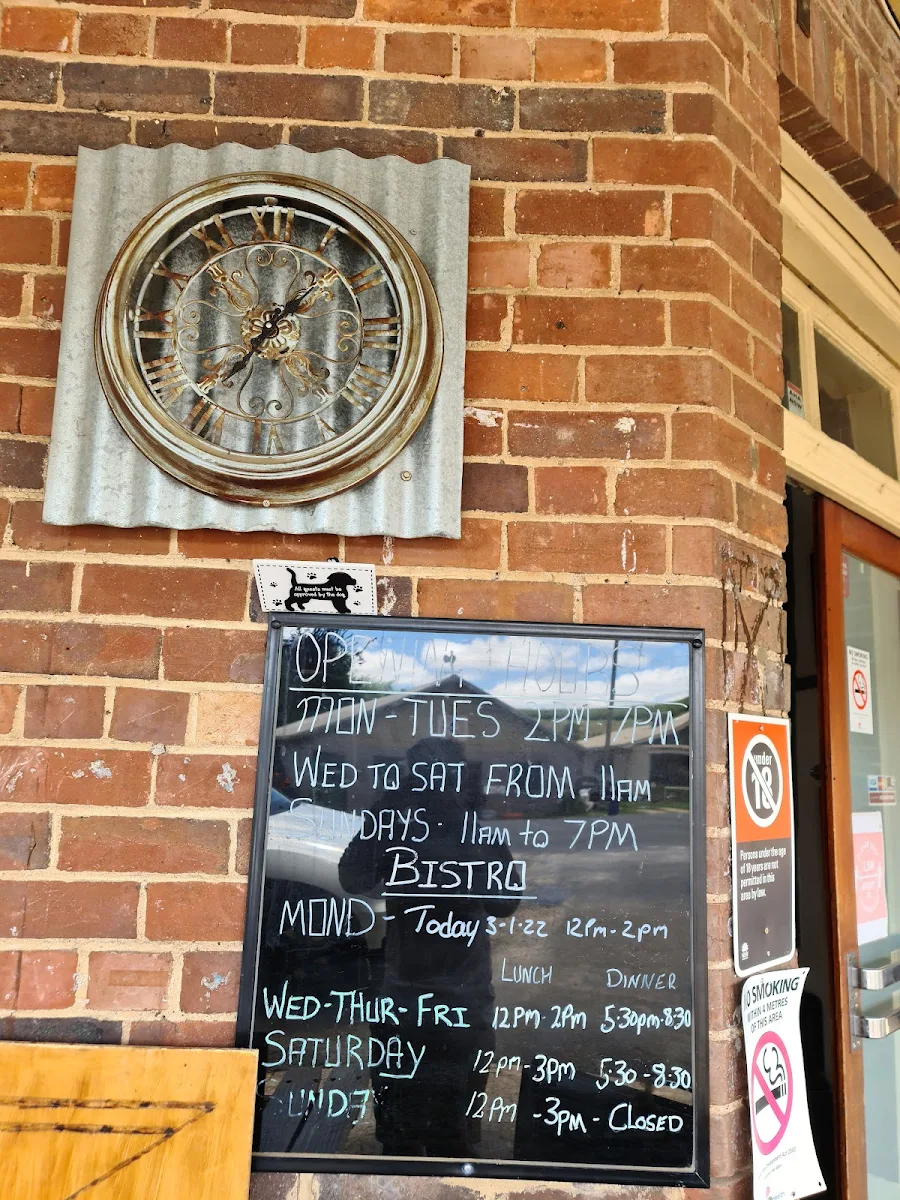 XII
I
II
III
IIII
V
VI
VII
VIII
IX
X
XI
All guests must be
approved by the dog
OPENING HOURS
MON - TUES 2PM - 7PM
WED TO SAT FROM 11AM
SUNDAYS - 11AM to 7PM
BISTRO
MOND - Today 3-1-22 12PM - 2PM
LUNCH DINNER
WED-THUR-FRI 12PM - 2PM 5:30PM-8:30
SATURDAY 12PM - 3PM 5:30 - 8:30
12PM - 3PM - CLOSED
NO SMOKING
under
18
Persons under the age
of 18 years are not
permitted in this
area by law.
NO SMOKING
WITHIN 4 METRES
OF THIS AREA